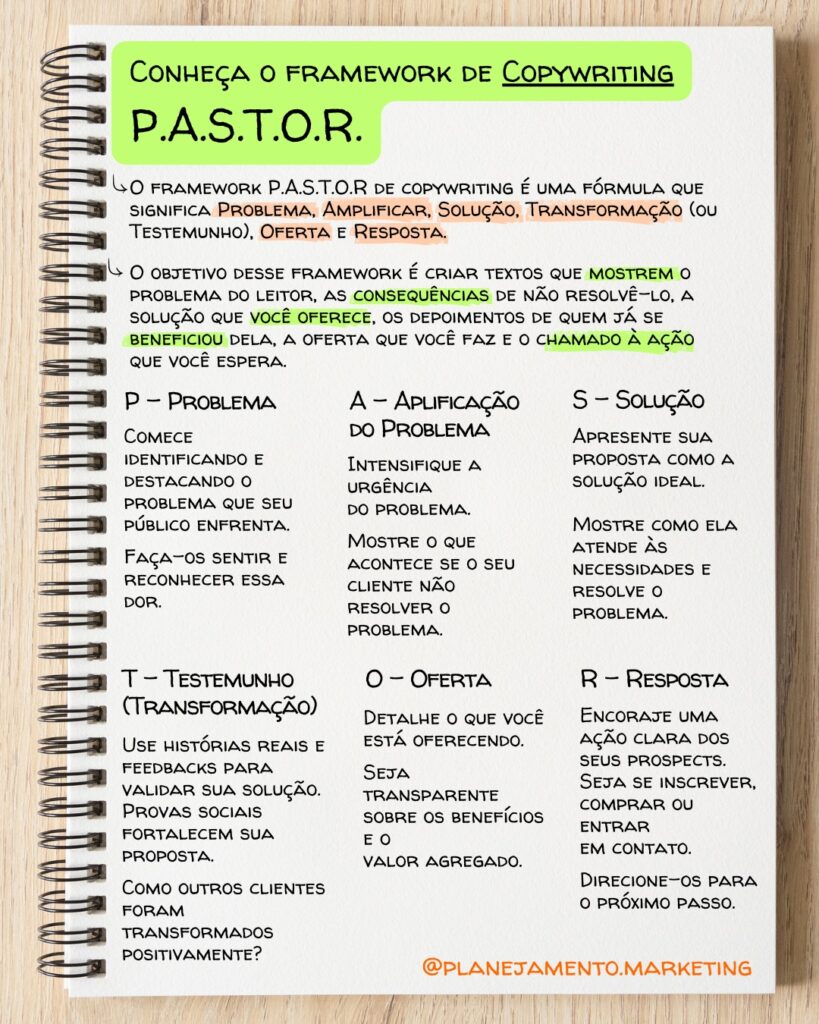 Conheça o framework de Copywriting
P.A.S.T.O.R.
O framework P.A.S.T.O.R de copywriting é uma fórmula que
significa Problema, Amplificar, Solução, Transformação (ou
Testemunho), Oferta e Resposta.
O objetivo desse framework é criar textos que mostrem o
problema do leitor, as consequências de não resolvê-lo, a
solução que você oferece, os depoimentos de quem já se
beneficiou dela, a oferta que você faz e o chamado à ação
que você espera.
P - Problema
Comece
identificando e
destacando o
problema que seu
público enfrenta.
Faça-os sentir e
reconhecer essa
dor.
A - Aplificação
do Problema
Intensifique a
urgência
do problema.
Mostre o que
acontece se o seu
cliente não
resolver o
problema.
S - Solução
Apresente sua
proposta como a
solução ideal.
Mostre como ela
atende às
necessidades e
resolve o
problema.
T - Testemunho
(Transformação)
Use histórias reais e
feedbacks para
validar sua solução.
Provas sociais
fortalecem sua
proposta.
Como outros clientes
foram
transformados
positivamente?
O - Oferta
Detalhe o que você
está oferecendo.
Seja
transparente
sobre os benefícios
e o
valor agregado.
R - Resposta
Encoraje uma
ação clara dos
seus prospects.
Seja se inscrever,
comprar ou
entrar
em contato.
Direcione-os para
o próximo passo.
@planejamento.marketing